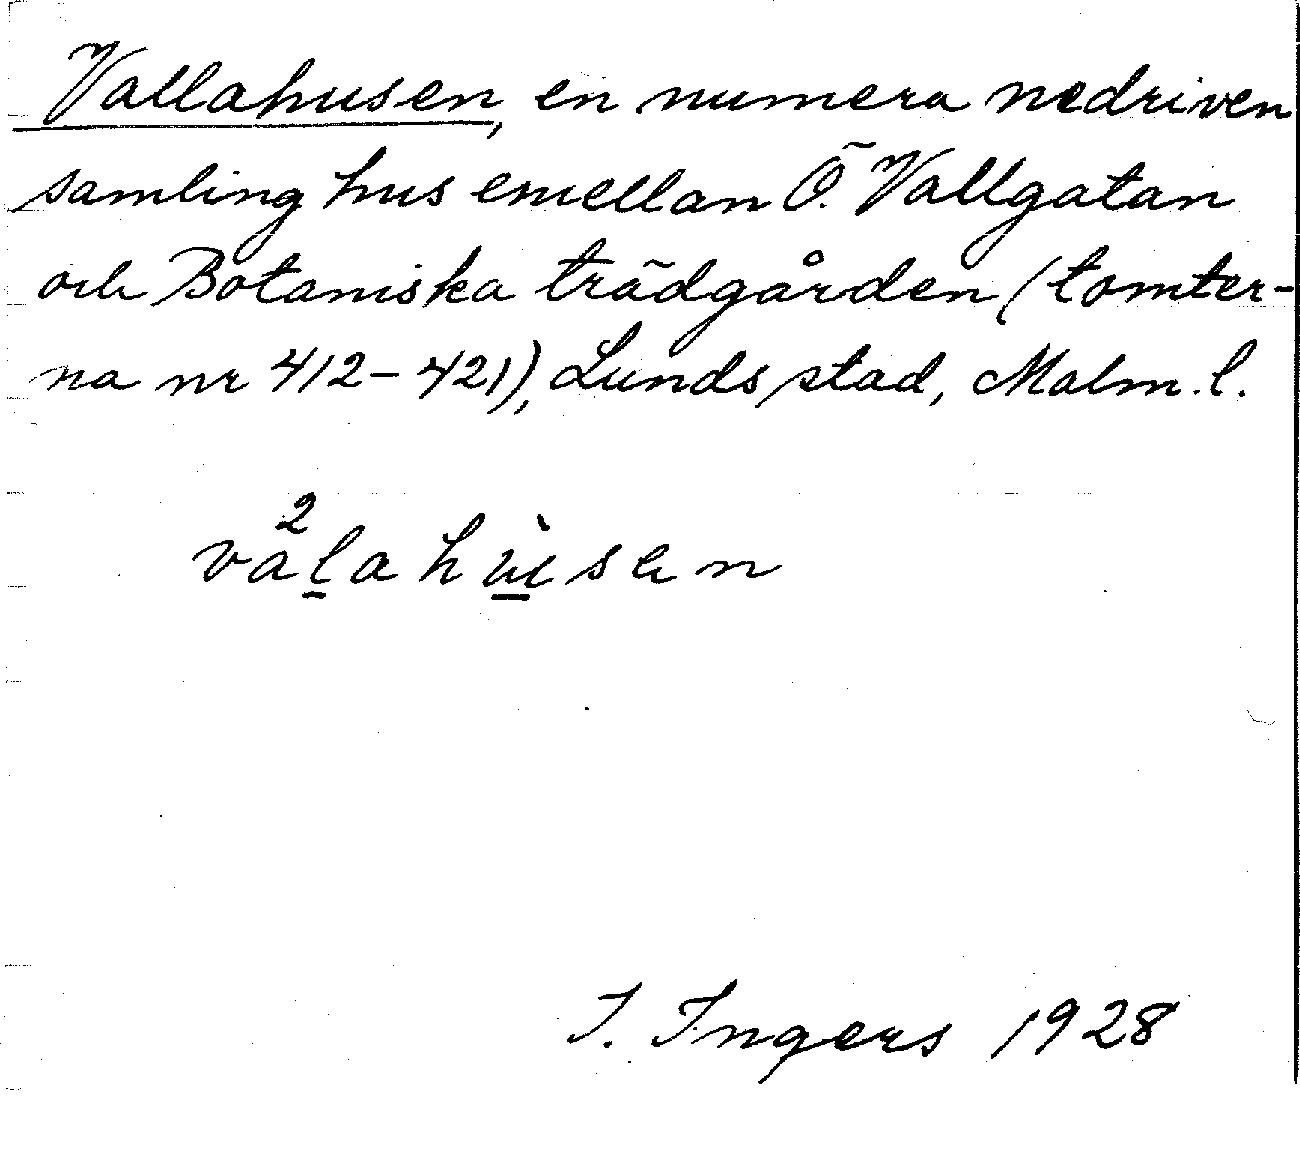 Vallahusen, en numera nedriven
samling hus emellan Ö. Vallgatan
och Botaniska trädgården (tomter-
na nr 412-421), Lunds stad, Malm. l.
2
valahùsen
I. Ingers 1928